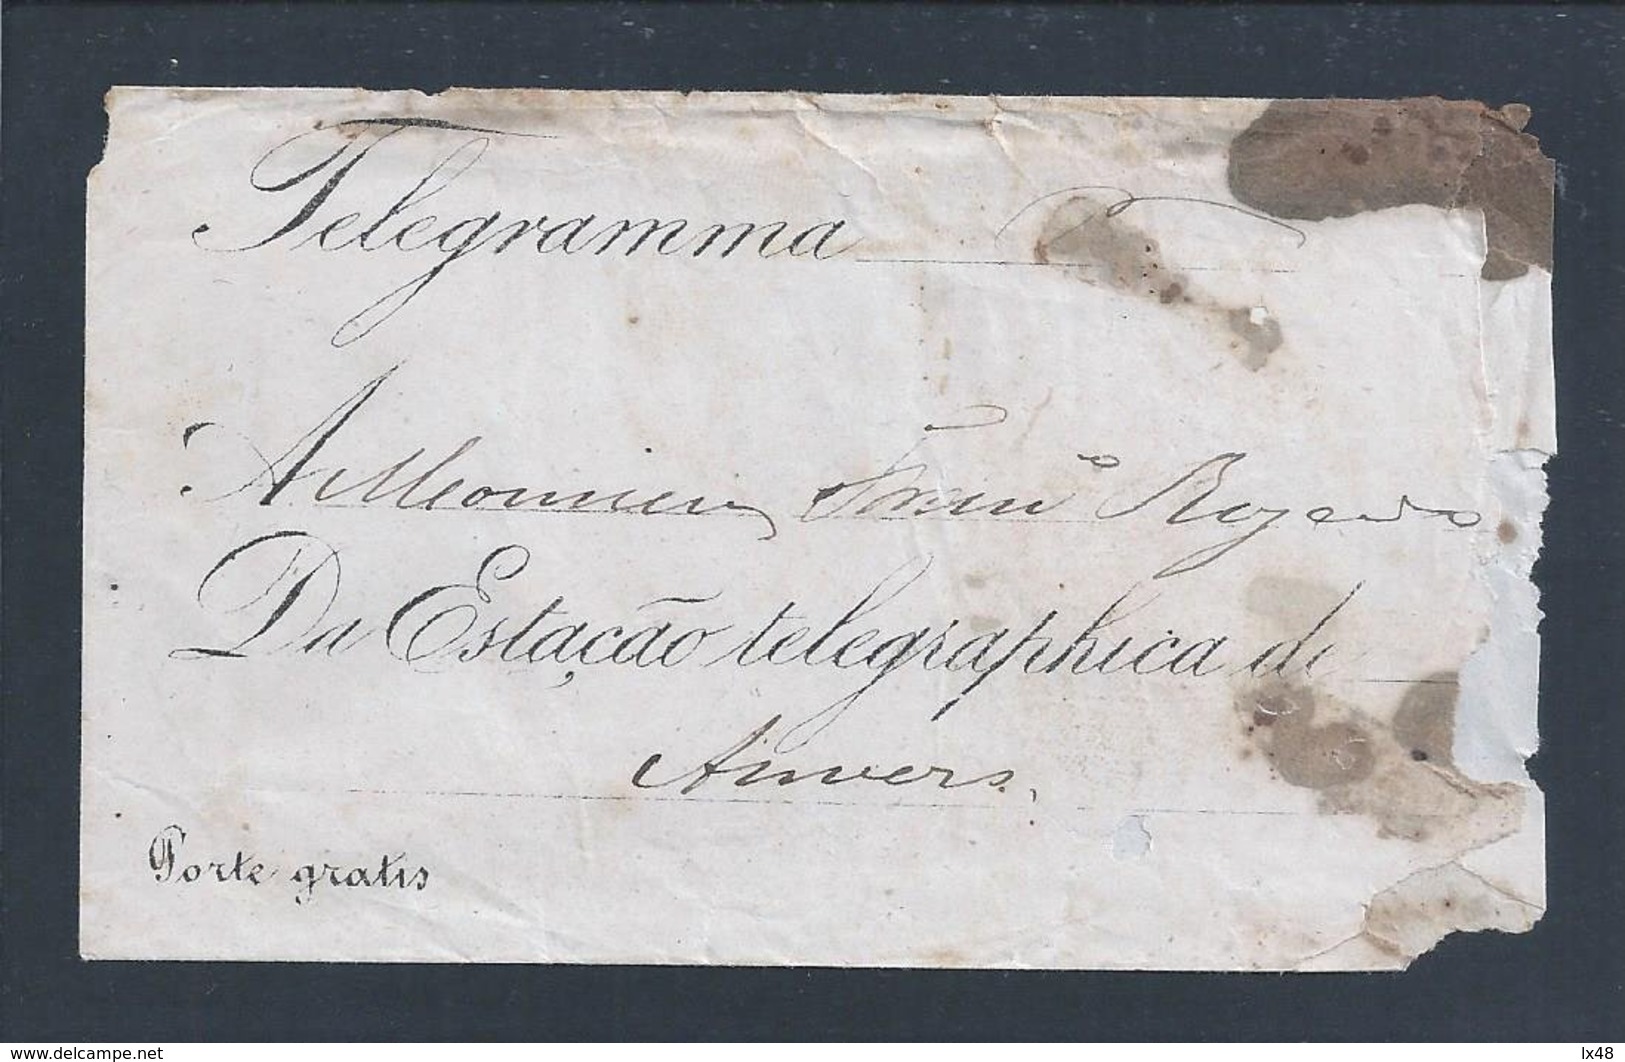 Telegramma
A Monsieur Fran.co Rogeiro
Da Estação telegraphica de
Anvers
Porte gratis
www.delcampe.net
lx48